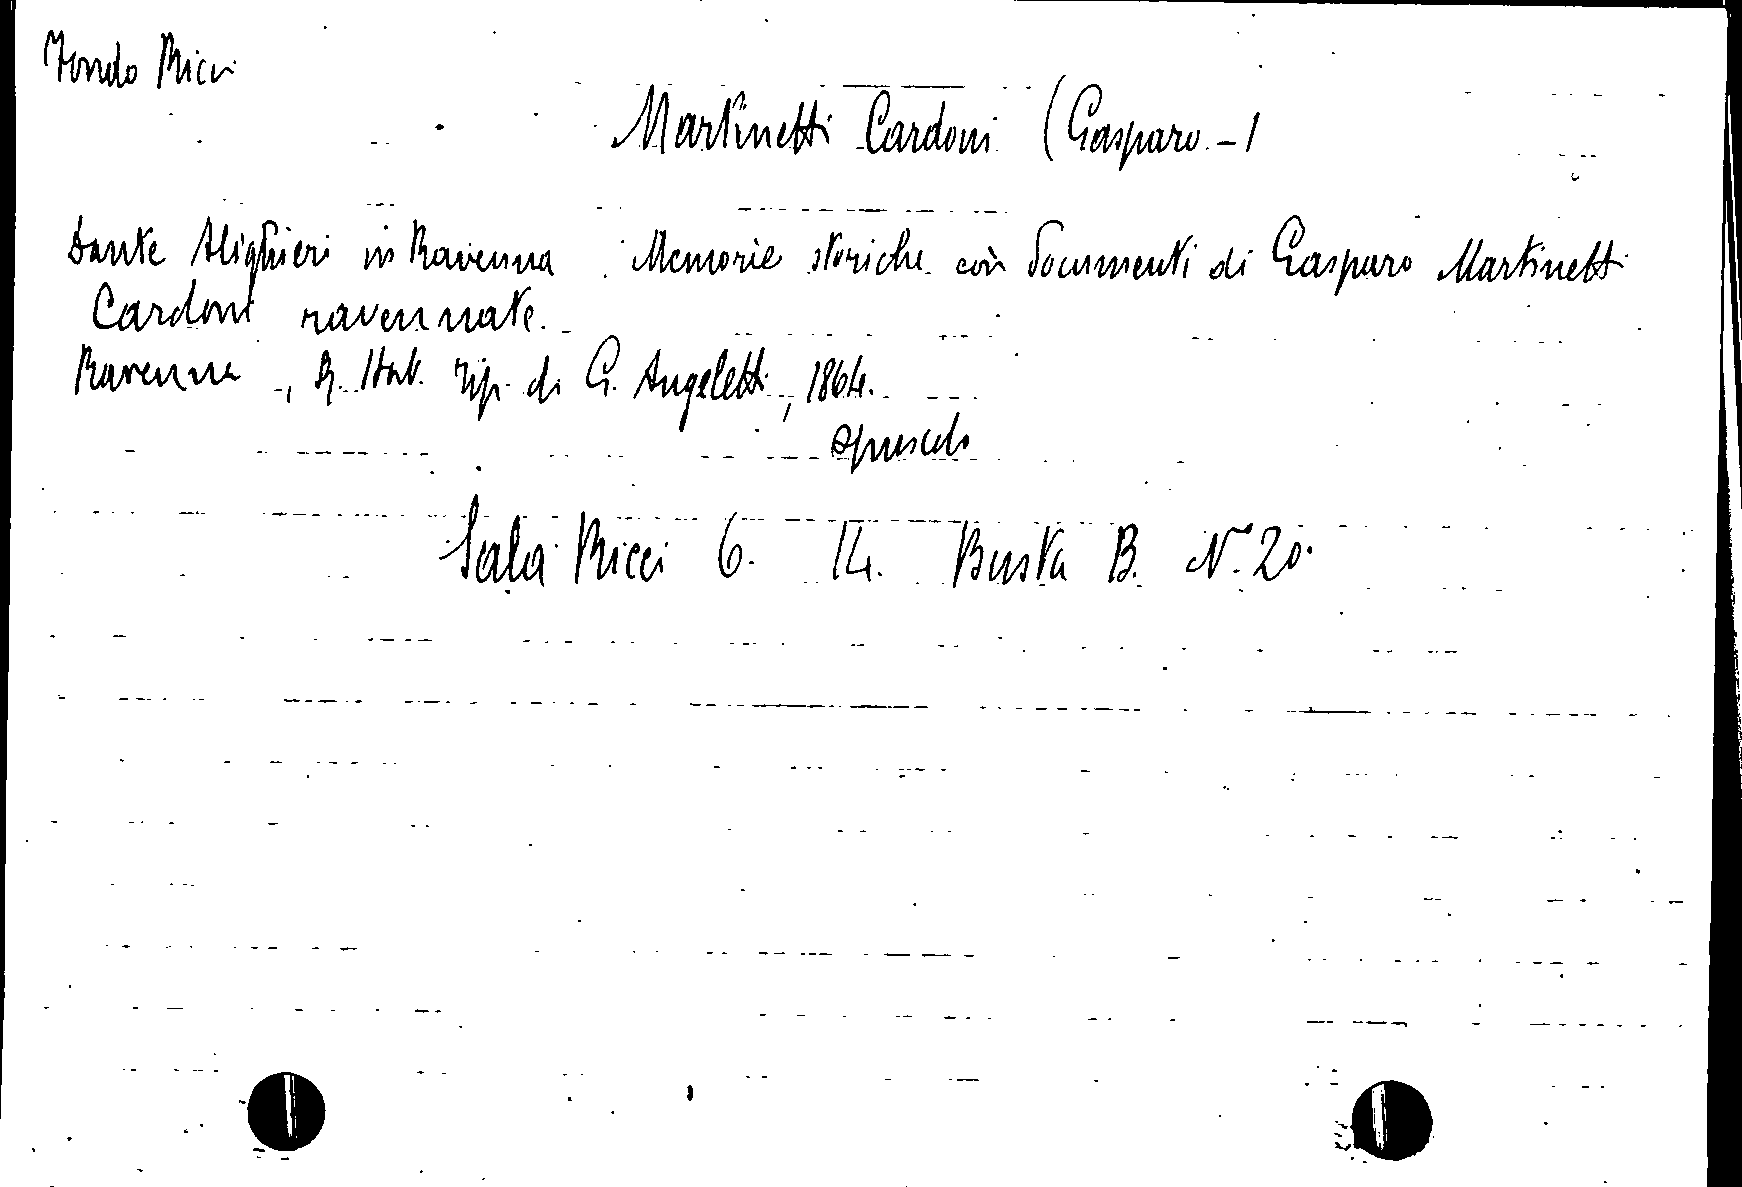 Fondo Ricci
Martinetti Cardoni (Gasparo -)
Dante Alighieri in Ravenna. Memorie storiche con documenti di Gasparo Martinetti
Cardoni ravennate.
Ravenna, R. Stab. Tip. di G. Angeletti, 1864.
opuscolo
Sala Ricci 6. 14. Busta B. N. 20.